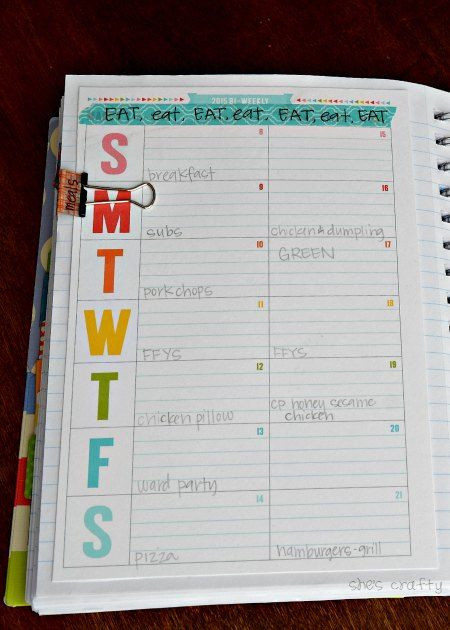 2015 BI-WEEKLY
EAT, eat, EAT, eat, EAT, eat, EAT
S 8 15
breakfast
meals
M 9 16
subs chicken & dumpling
T 10 17
GREEN
porkchops
W 11 18
FFYS FFYS
T 12 19
chicken pillow cp honey sesame
chicken
F 13 20
ward party
S 14 21
pizza hamburgers-grill
she's crafty